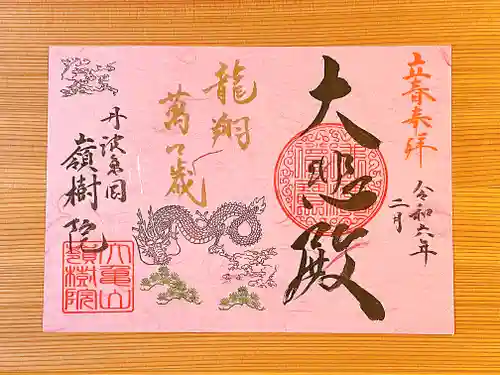 立春奉拝
令和六年
二月
大悲殿
龍翔
萬々歳
丹波亀岡
嶺樹院
大亀山
嶺樹院